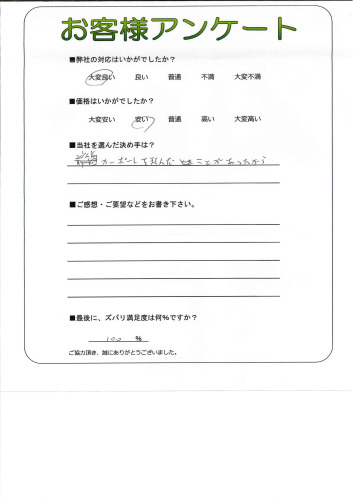 お客様アンケート
■弊社の対応はいかがでしたか？
大変良い 良い 普通 不満 大変不満
■価格はいかがでしたか？
大変安い 安い 普通 高い 大変高い
■当社を選んだ決め手は？
カーポートを頼んだ ことがあったから
■ご感想・ご要望などをお書き下さい。
■最後に、ズバリ満足度は何％ですか？
100 %
ご協力頂き、誠にありがとうございました。